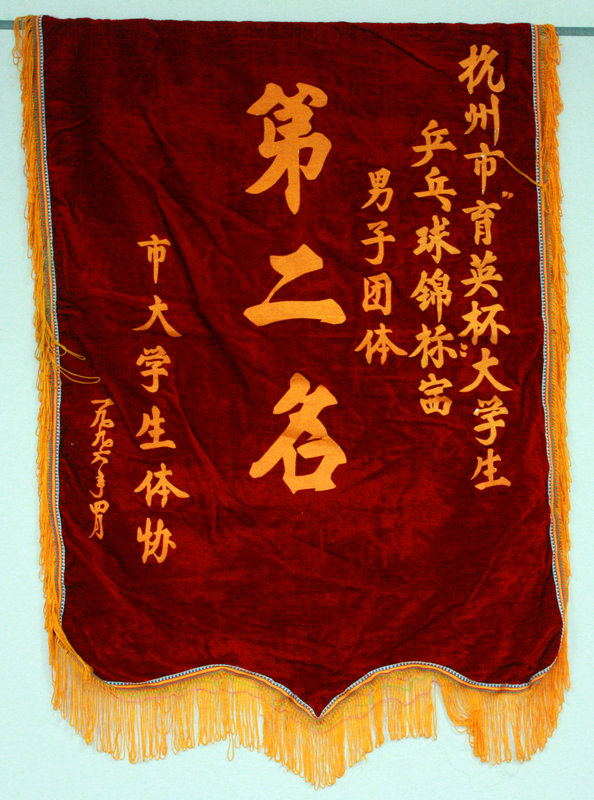 杭州市“育英杯”大学生
乒乓球锦标赛
男子团体
第二名
市大学生体协
一九九六年四月